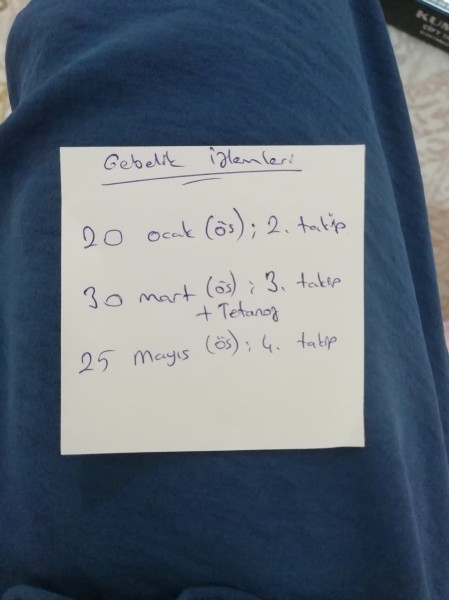 Gebelik İzlemleri
20 ocak (ös); 2. takip
30 mart (ös); 3. takip
+ Tetanoz
25 Mayıs (ös); 4. takip
KUM